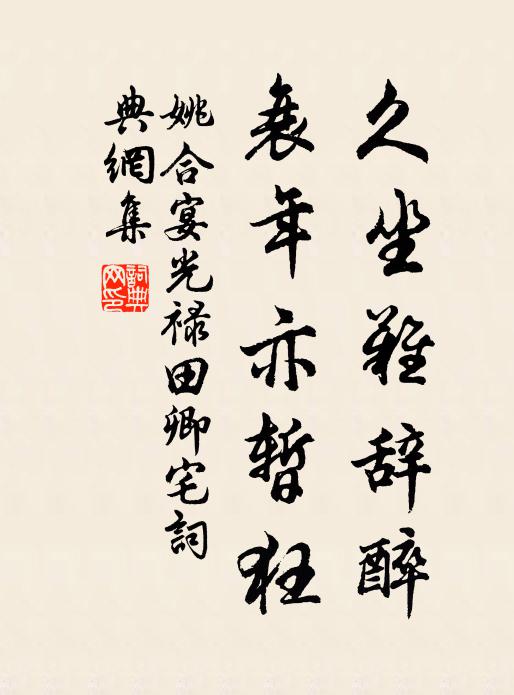 久坐難辞醉
衰年亦暫狂
姚合宴光禄田卿宅詞
典網集
詞典
网印